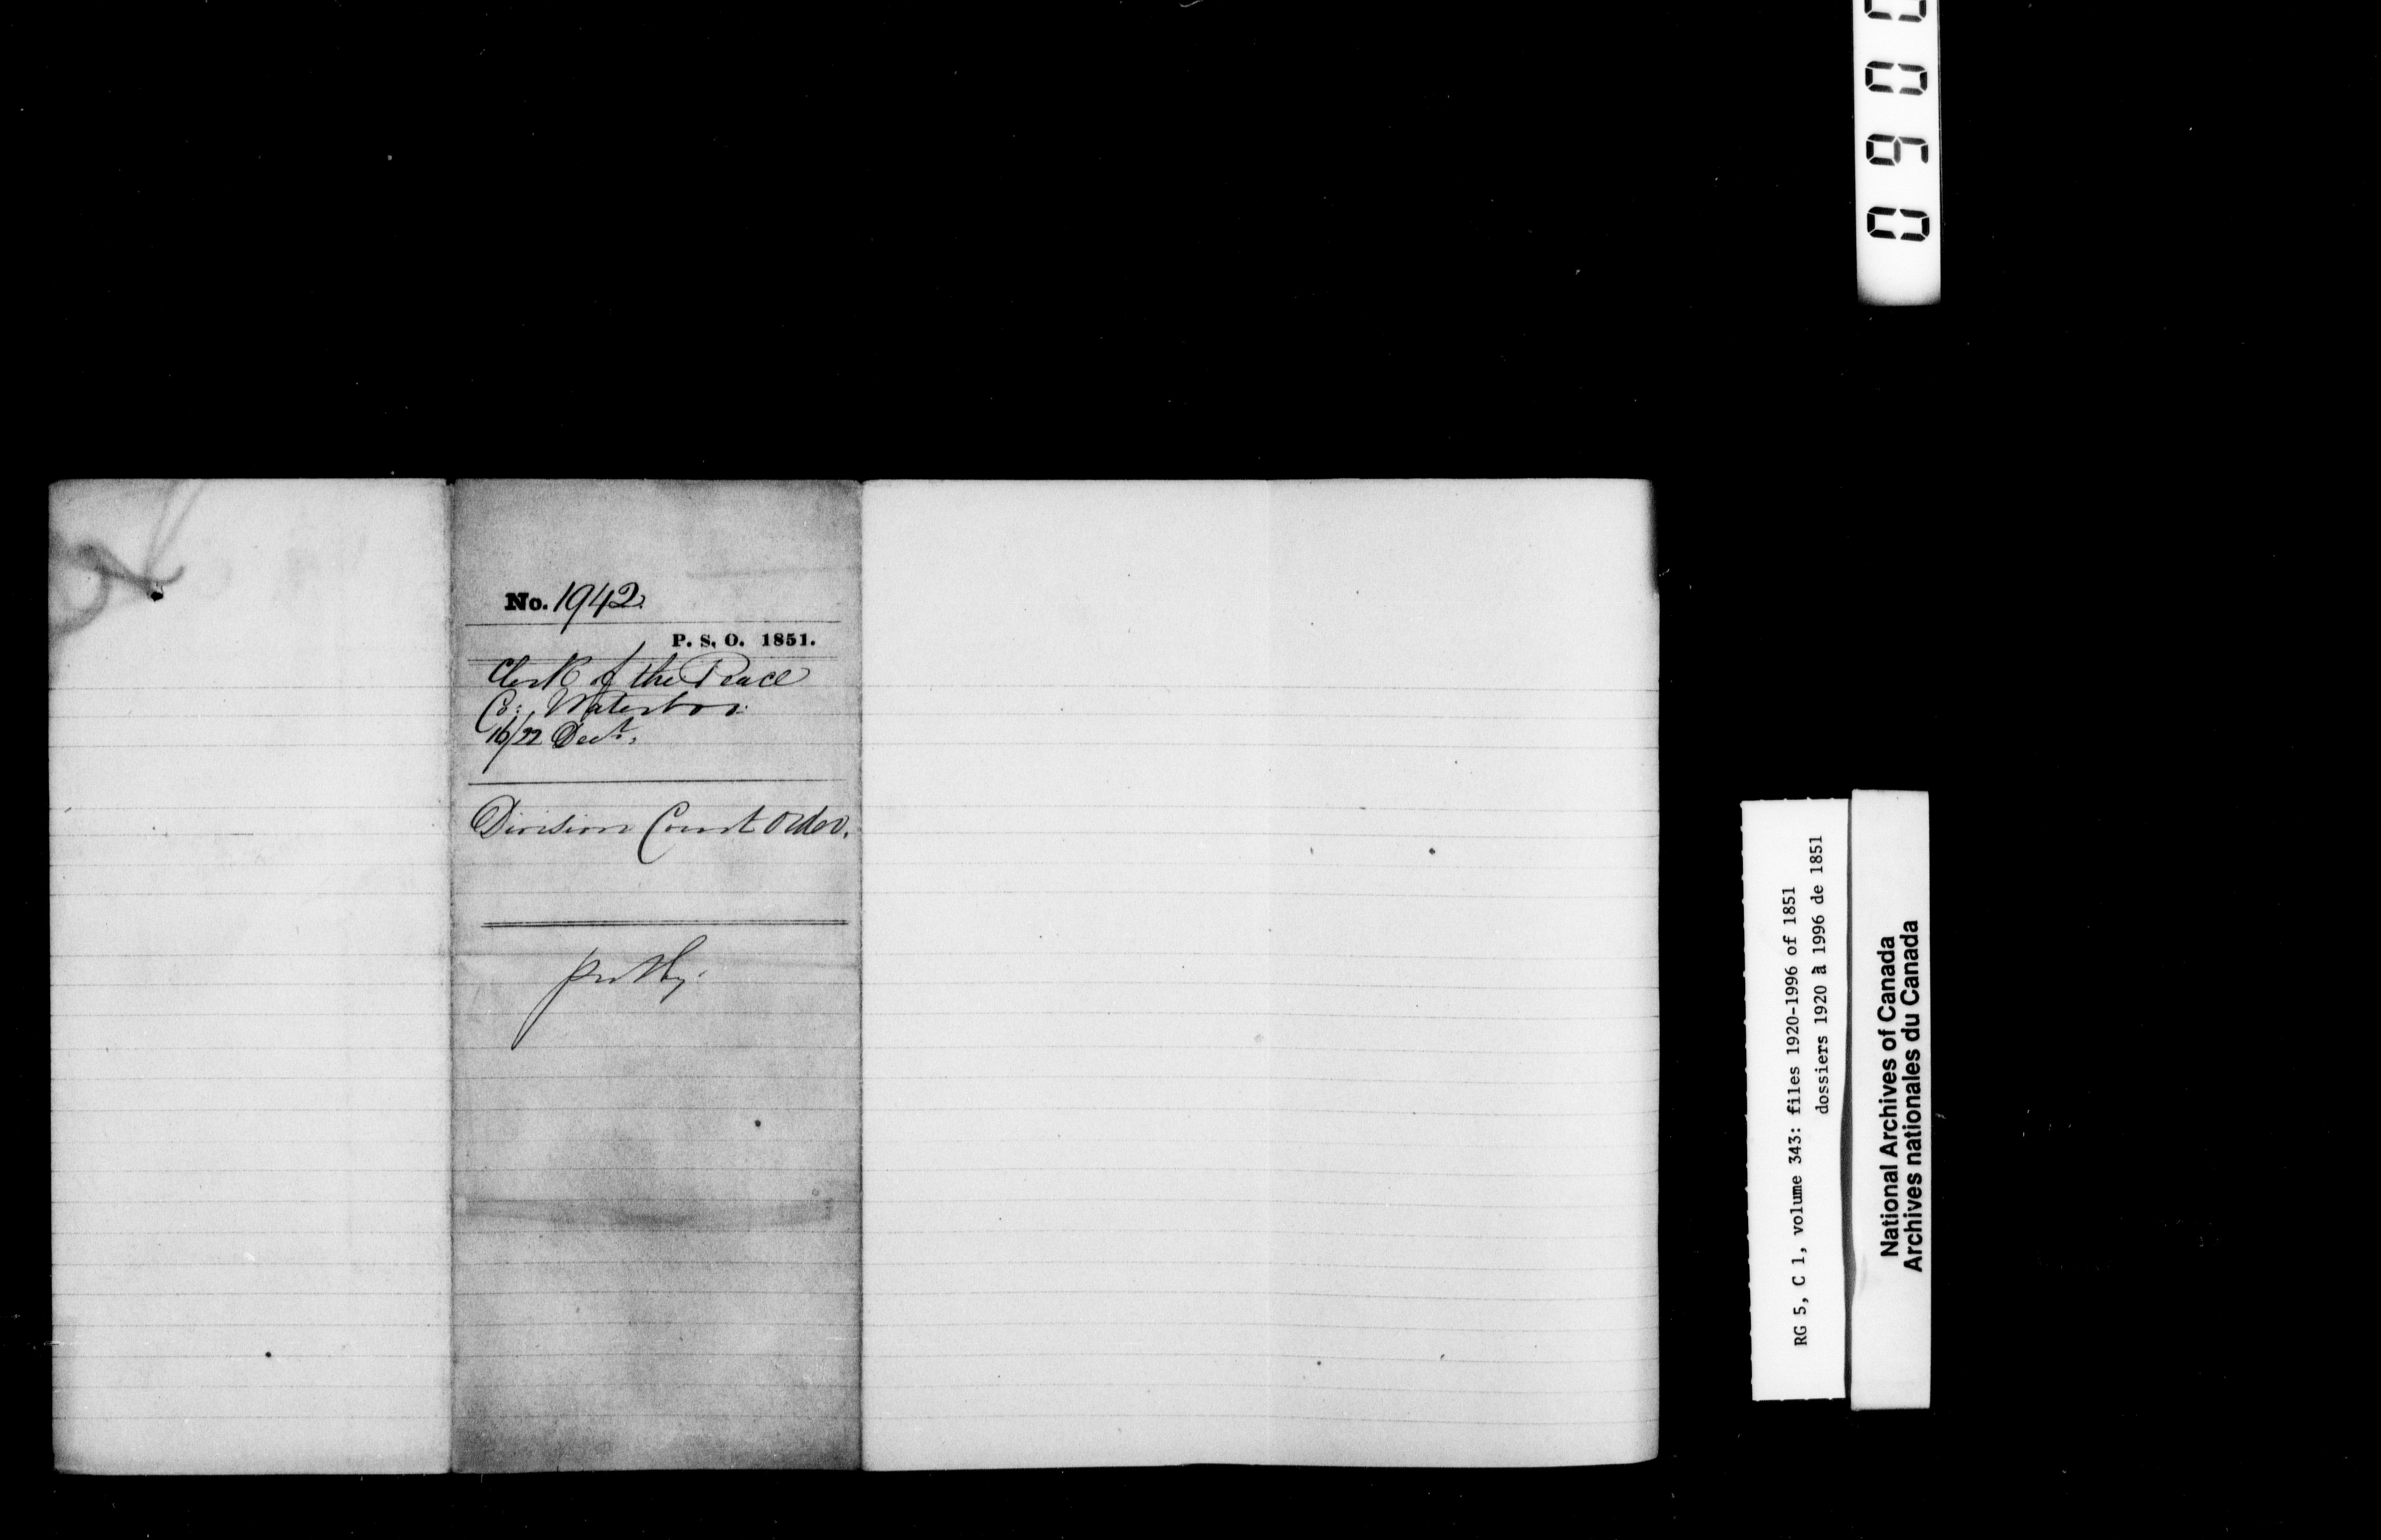 No. 1942.
P. S. O. 1851.
Clerk of the Peace
Co: Waterloo.
16/22 Decr.
Division Court Order.
RG 5, C 1, volume 343: files 1920-1996 of 1851
dossiers 1920 à 1996 de 1851
National Archives of Canada
Archives nationales du Canada